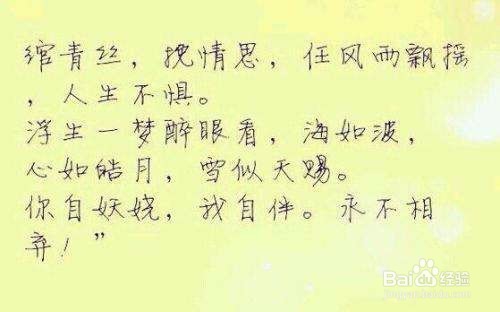 绾青丝，挽情思，任风雨飘摇
，人生不惧。
浮生一梦醉眼看，海如波，
心如皓月，雪似天赐。
你自妖娆，我自伴。永不相
弃！”
Baidu经验
jingyan.baidu.com